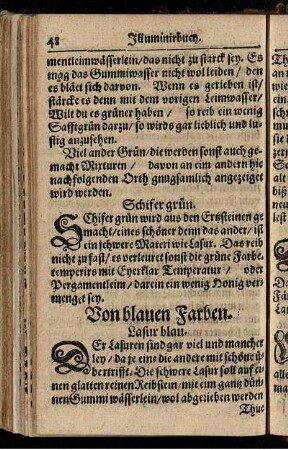 48 Illuminirbuch.
mentleimwässerlein/das nicht zu starck sey. Es
mag das Gummiwasser nicht wol leiden/ den
es bläet sich darvon. Wenn es gerieben ist/
stärcke es denn mit dem vorigen Leimwasser/
Wilt du es grüner haben / so reib ein wenig
Safftgrün darzu/ so wirds gar lieblich und lu-
stig anzusehen.
Viel ander Grün/die werden sonst auch ge-
macht Mixturen / davon an eim andern hie
nachfolgenden Orth gnugsamlich angezeiget
wird werden.
Schifer grün.
SChifer grün wird aus den Ertzsteinen ge-
macht/eines schöner denn das ander/ ist
ein schwere Materi wie Lasur. Das reib
nicht zu fast/ es verleuret sonst die grüne Farbe.
temperirs mit Eyerklar Temperatur / oder
Pergamentleim/ darein ein wenig Honig ver-
menget sey.
Von blauen Farben.
Lasur blau.
DEr Lasuren sind gar viel und mancher
ley/ da je eine die andere mit schöne ü-
bertrifft. Die schwere Lasur soll auf ei-
nen glatten reinen Reibstein/mit eim gantz dün-
nen Gummi wässerlein/wol abgerieben werden
Thue